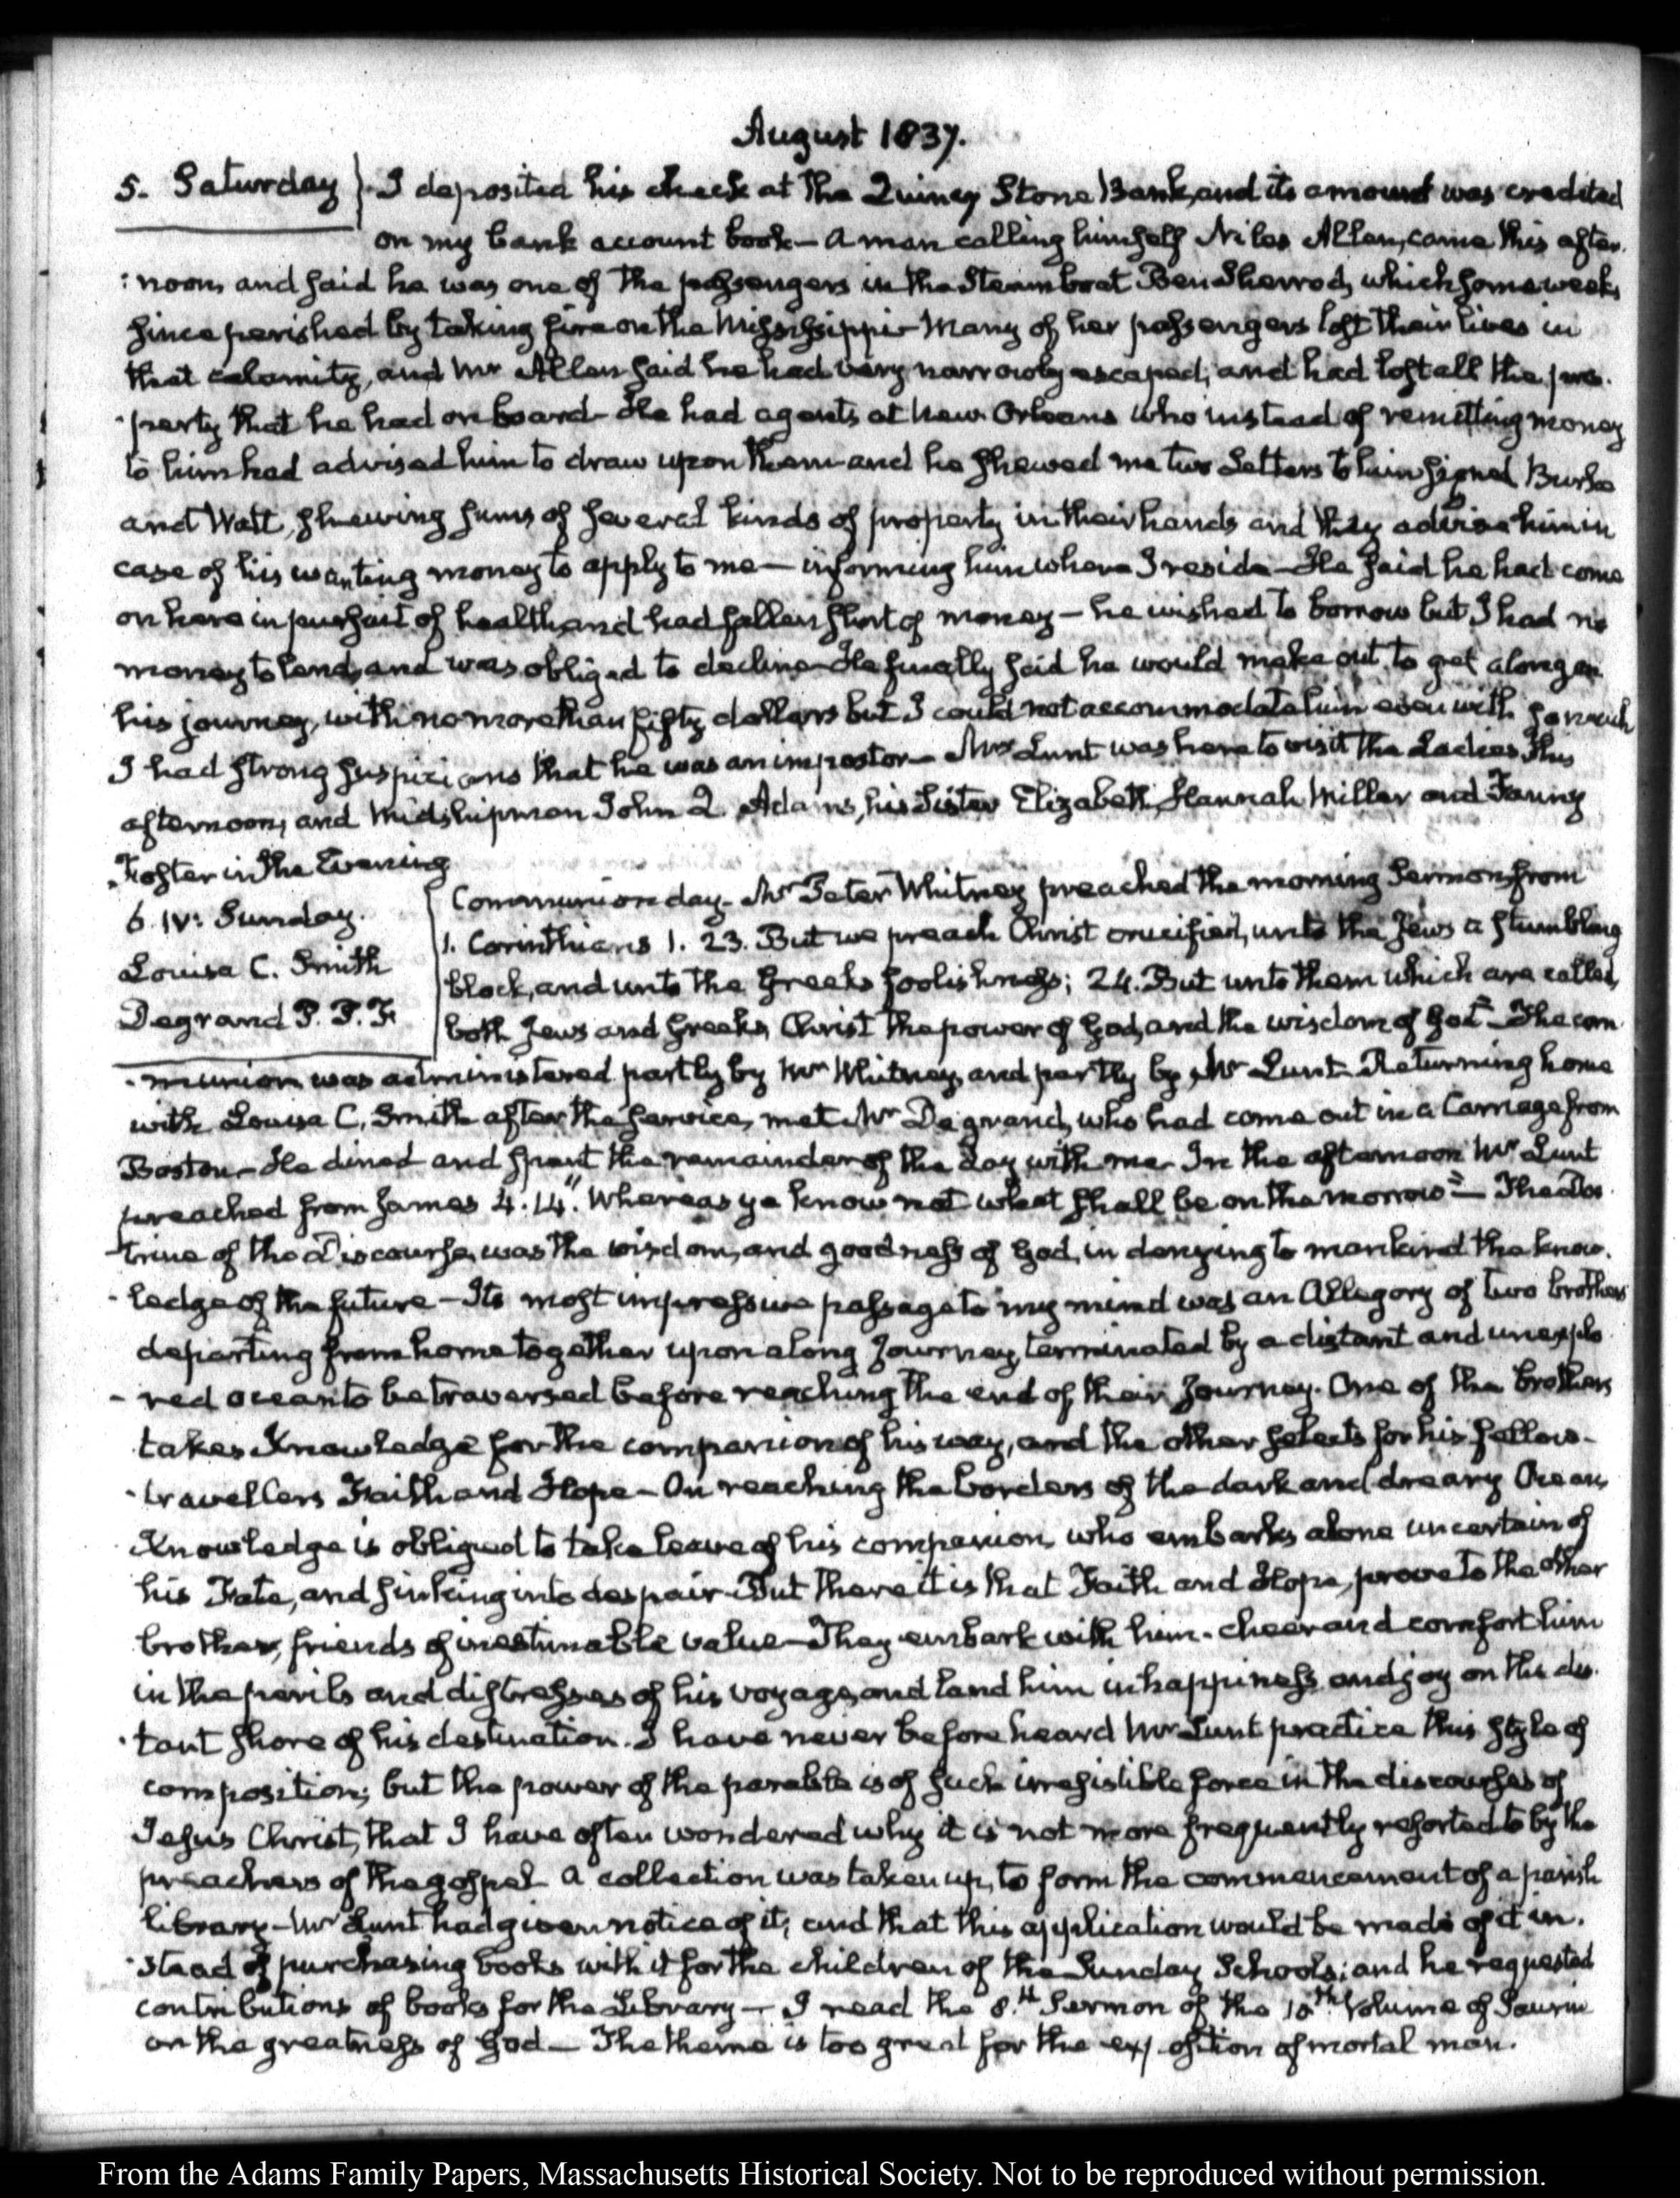 August 1837.
5. Saturday } I deposited his check at the Quincy Stone Bank, and its amount was credited
on my bank account book — A man calling himself Niles Allen, came this after-
:noon, and said he was one of the passengers in the Steamboat Ben Sherrod, which some weeks
since perished by taking fire on the Mississippi — Many of her passengers lost their lives in
that calamity, and Mr Allen said he had very narrowly escaped, and had lost all the pro-
-perty that he had on board — He had agents at New Orleans who instead of remitting money
to him had advised him to draw upon them and he shewed me two Letters to him signed Burke
and Watt, shewing sums of several kinds of property in their hands and they advise him in
case of his wanting money to apply to me — informing him where I reside — He said he had come
on here in pursuit of health, and had fallen short of money — he wished to borrow but I had no
money to lend, and was obliged to decline — He finally said he would make out, to get along on
his journey, with no more than fifty dollars but I could not accommodate him even with so much
I had strong suspicions that he was an impostor — Mrs Lunt was here to visit the Ladies this
afternoon, and Midshipman John Q. Adams, his Sister Elizabeth, Hannah Miller and Fanny
Foster in the Evening
6. IV: Sunday.
Louisa C. Smith
Degrand P. P. F.
Communion day — Mr Peter Whitney preached the morning Sermon, from
1. Corinthians 1. 23. But we preach Christ crucified, unto the Jews a stumbling
block, and unto the Greeks foolishness; 24. But unto them which are called,
both Jews and Greeks, Christ the power of God, and the wisdom of God" — The com-
-munion was administered partly by Mr Whitney, and partly by Mr Lunt — Returning home
with Louisa C. Smith after the service, met Mr Degrand, who had come out in a Carriage from
Boston — He dined and spent the remainder of the day with me — In the afternoon Mr Lunt
preached from James 4. 14. "Whereas ye know not what shall be on the morrow" — The Doc-
-trine of the Discourse, was the wisdom, and goodness of God, in denying to mankind the know-
-ledge of the future — Its most impressive passage to my mind was an Allegory of two brothers
departing from home together upon a long Journey, terminated by a distant and unexplo-
-red ocean to be traversed before reaching the end of their Journey. One of the brothers
takes Knowledge for the companion of his way, and the other selects for his fellow-
-travellers Faith and Hope — On reaching the borders of the dark and dreary Ocean,
Knowledge is obliged to take leave of his companion, who embarks alone uncertain of
his Fate, and sinking into despair — But there it is that Faith and Hope, prove to the other
brother, friends of inestimable value — They embark with him — cheer and comfort him
in the perils and distresses of his voyage, and land him in happiness and joy on the dis-
-tant shore of his destination. I have never before heard Mr Lunt practice this style of
composition; but the power of the parable is of such irresistible force in the discourses of
Jesus Christ, that I have often wondered why it is not more frequently resorted to by the
preachers of the gospel — A collection was taken up, to form the commencement of a parish
library — Mr Lunt had given notice of it; and that this application would be made of it in-
-stead of purchasing books with it for the children of the Sunday Schools; and he requested
contributions of books for the Library — I read the 8.th Sermon of the 10th Volume of Saurin
on the greatness of God — The theme is too great for the exposition of mortal man.
From the Adams Family Papers, Massachusetts Historical Society. Not to be reproduced without permission.